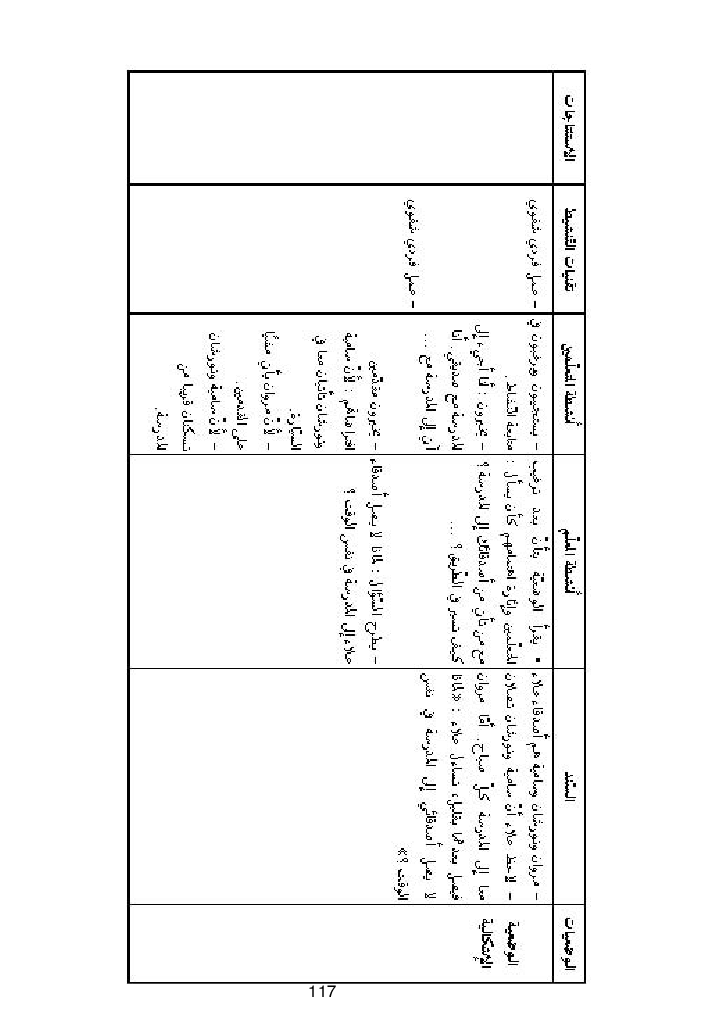 الوضعيات
السند
أنشطة المعلّم
أنشطة المتعلّمين
تقنيات التنشيط
الاستنتاجات
الوضعية
الإشكالية
- مروان ونورشان وسامية هم أصدقاء علاء
- لاحظ علاء أنّ سامية ونورشان تصلان
معا إلى المدرسة كلّ صباح. أمّا مروان
فيصل بعدهما بقليل، تساءل علاء : «لماذا
لا يصل أصدقائي إلى المدرسة في نفس
الوقت ؟»
• يقرأ الوضعيّة بتأنّ بعد ترغيب
المتعلّمين وإثارة اهتمامهم كأن يسأل :
مع من تأتي من أصدقائك إلى المدرسة ؟
كيف تسير في الطريق ؟ ...
- يطرح السّؤال : لماذا لا يصل أصدقاء
علاء إلى المدرسة في نفس الوقت ؟
- يستجيبون ويرغبون في
متابعة النّشاط.
- يخبرون : أنا أجيء إلى
المدرسة مع صديقي. أنا
آتي إلى المدرسة مع ...
- يخبرون مقدّمين
افتراضاتهم : لأنّ سامية
ونورشان تأتيان معا في
السيّارة.
- لأنّ مروان يأتي مشيًا
على القدمين.
- لأنّ سامية ونورشان
تسكنان قريبا من
المدرسة.
- عمل فردي شفوي
- عمل فردي شفوي
117